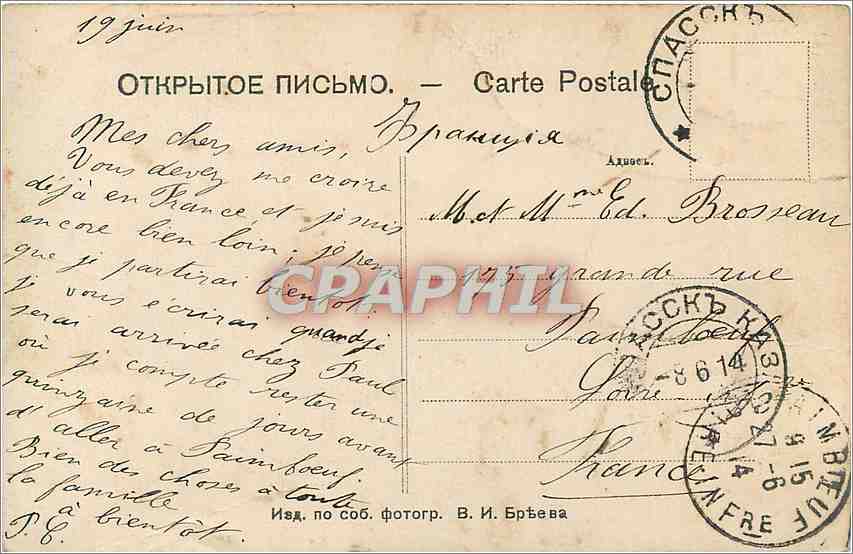 19 juin
ОТКРЫТОЕ ПИСЬМО. — Carte Postale
Франція
Адресъ.
Mes chers amis,
Vous devez me croire
déjà en France et je suis
encore bien loin; je pense
que je partirai bientôt.
je vous écrirai quand je
serai arrivée chez Paul
où je compte rester une
quinzaine de jours avant
d'aller à Paimboeuf.
Bien des choses à toute
la famille
à bientôt.
M. et Mme Ed. Brosseau
175 grande rue
Paimboeuf
Loire
France
СПАССКЪ
СПАССКЪ КАЗ.
-8 6 14
PAIMBŒUF
9 15
27 -6
14
LOIRE INFRE
CPARAPHIL
Изд. по соб. фотогр. В. И. Брѣева